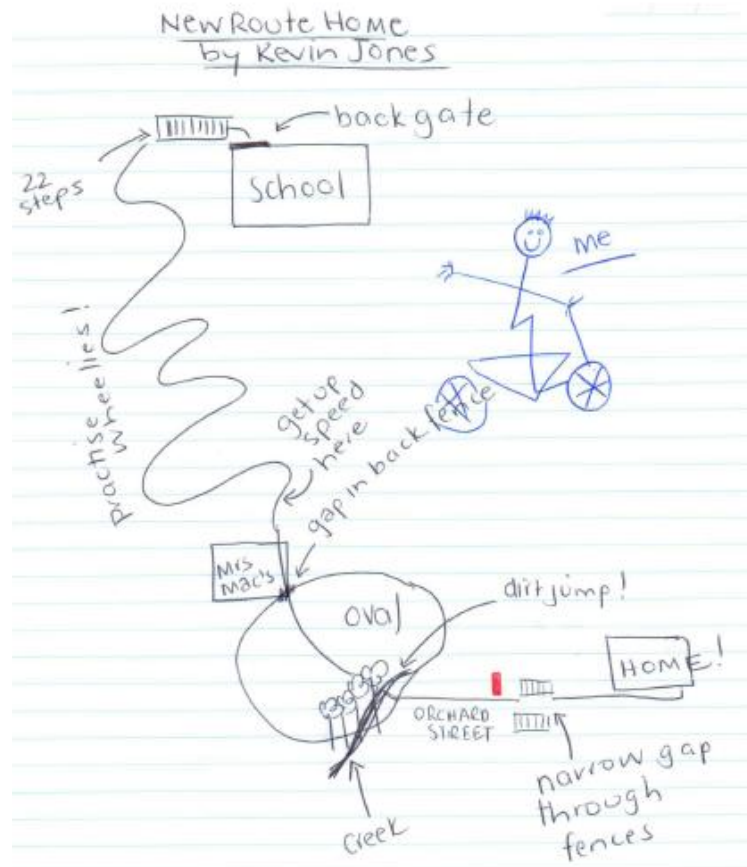 New Route Home
by Kevin Jones
back gate
22
steps
School
me
Practise
wheelies!
get up
speed
here
gap in back fence
Mrs
Mac's
oval
dirt jump!
HOME!
ORCHARD
STREET
narrow gap
through
fences
Creek